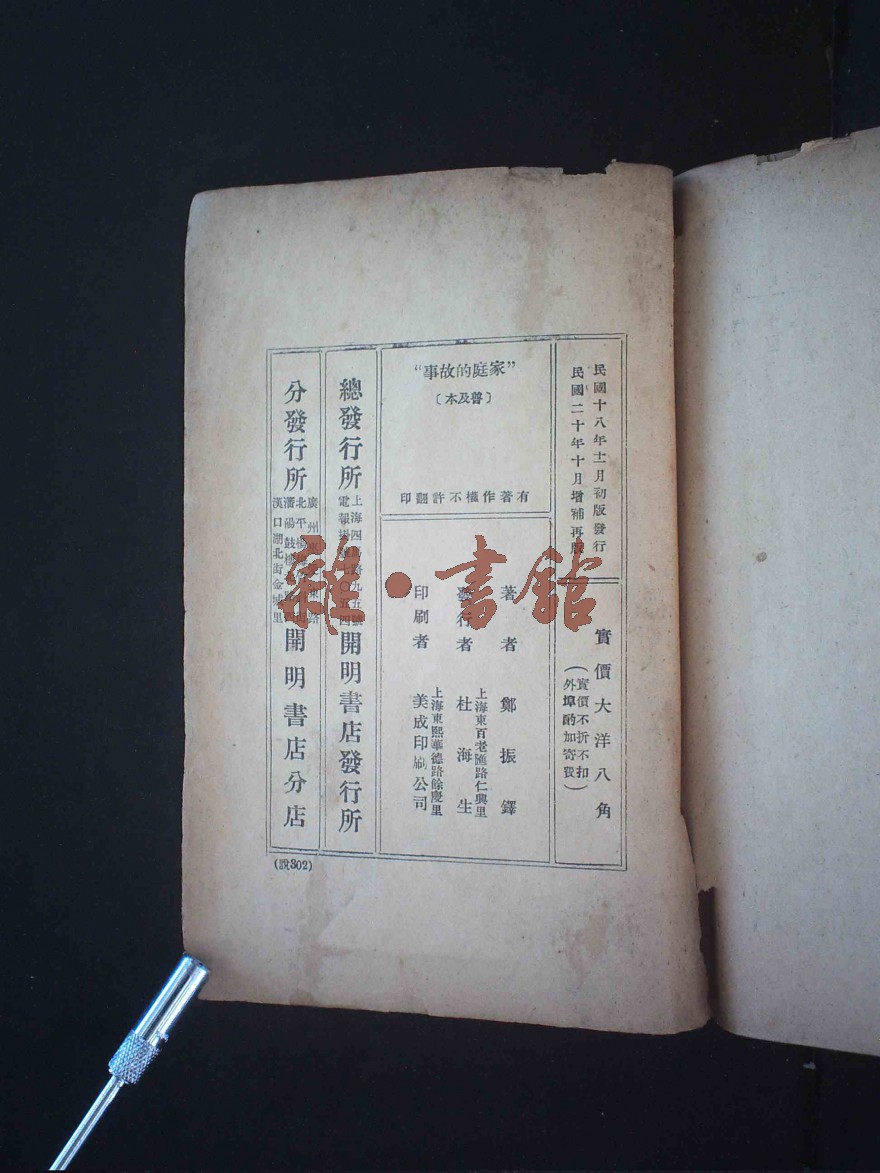 民國十八年十一月初版發行
民國二十年十月增補再版
實價大洋八角
（實價不折不扣
外埠酌加寄費）
“家庭的故事”
〔普及本〕
有著作權不許翻印
著者 鄭振鐸
上海東百老匯路仁興里
發行者 杜海生
上海東熙華德路餘慶里
印刷者 美成印刷公司
總發行所
上海四馬路九五號
電報掛號七〇五四
開明書店發行所
分發行所
廣州 東路
北平楊梅竹斜街
瀋陽鼓樓
漢口湖北街金城里
開明書店分店
(說302)
雜·書館